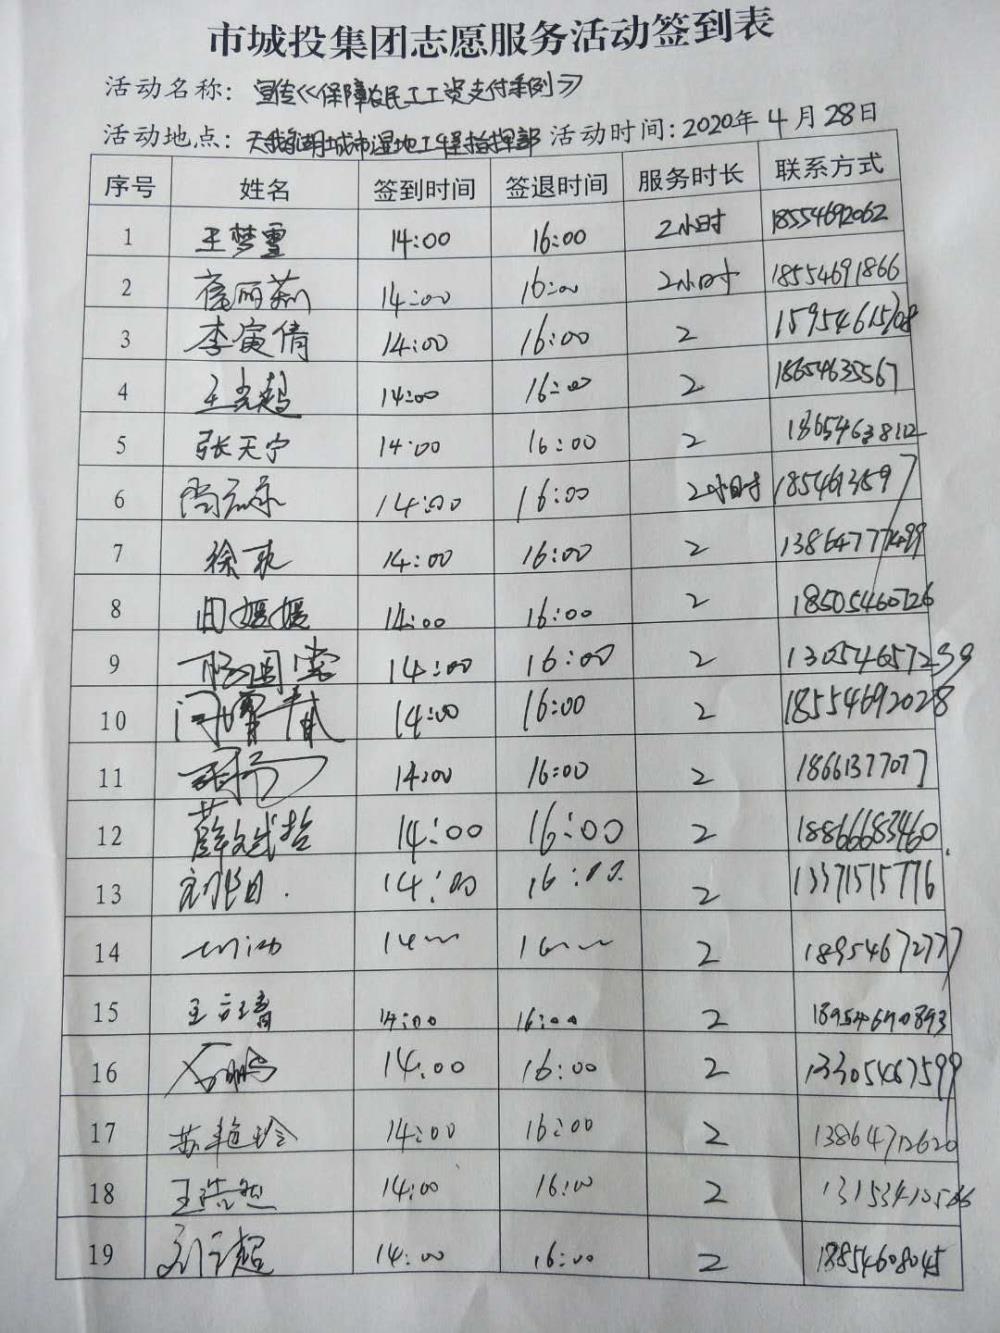 市城投集团志愿服务活动签到表
活动名称：宣传《保障农民工工资支付条例》
活动地点：天鹅湖城市湿地工程指挥部 活动时间：2020年4月28日
序号 姓名 签到时间 签退时间 服务时长 联系方式
1 王梦雪 14:00 16:00 2小时 18554692062
2 14:00 16:00 2小时 18554691866
3 李寅倩 14:00 16:00 2
4 14:00 16:00 2 18654635567
5 张天宁 14:00 16:00 2 18654638112
6 14:00 16:00 2小时
7 14:00 16:00 2 13864777499
8 田媛媛 14:00 16:00 2 18505460726
9 14:00 16:00 2 13054657239
10 14:00 16:00 2 18554692028
11 14:00 16:00 2 18661377077
12 薛文哲 14:00 16:00 2 18866683460
13 刘阳 14:00 16:00 2 13371515776
14 14 16 2 18954672777
15 14:00 16:00 2 18954690893
16 石鹏 14:00 16:00 2 13305467599
17 苏艳玲 14:00 16:00 2 13864712620
18 王浩然 14:00 16:00 2
19 14:00 16:00 2 18854608045